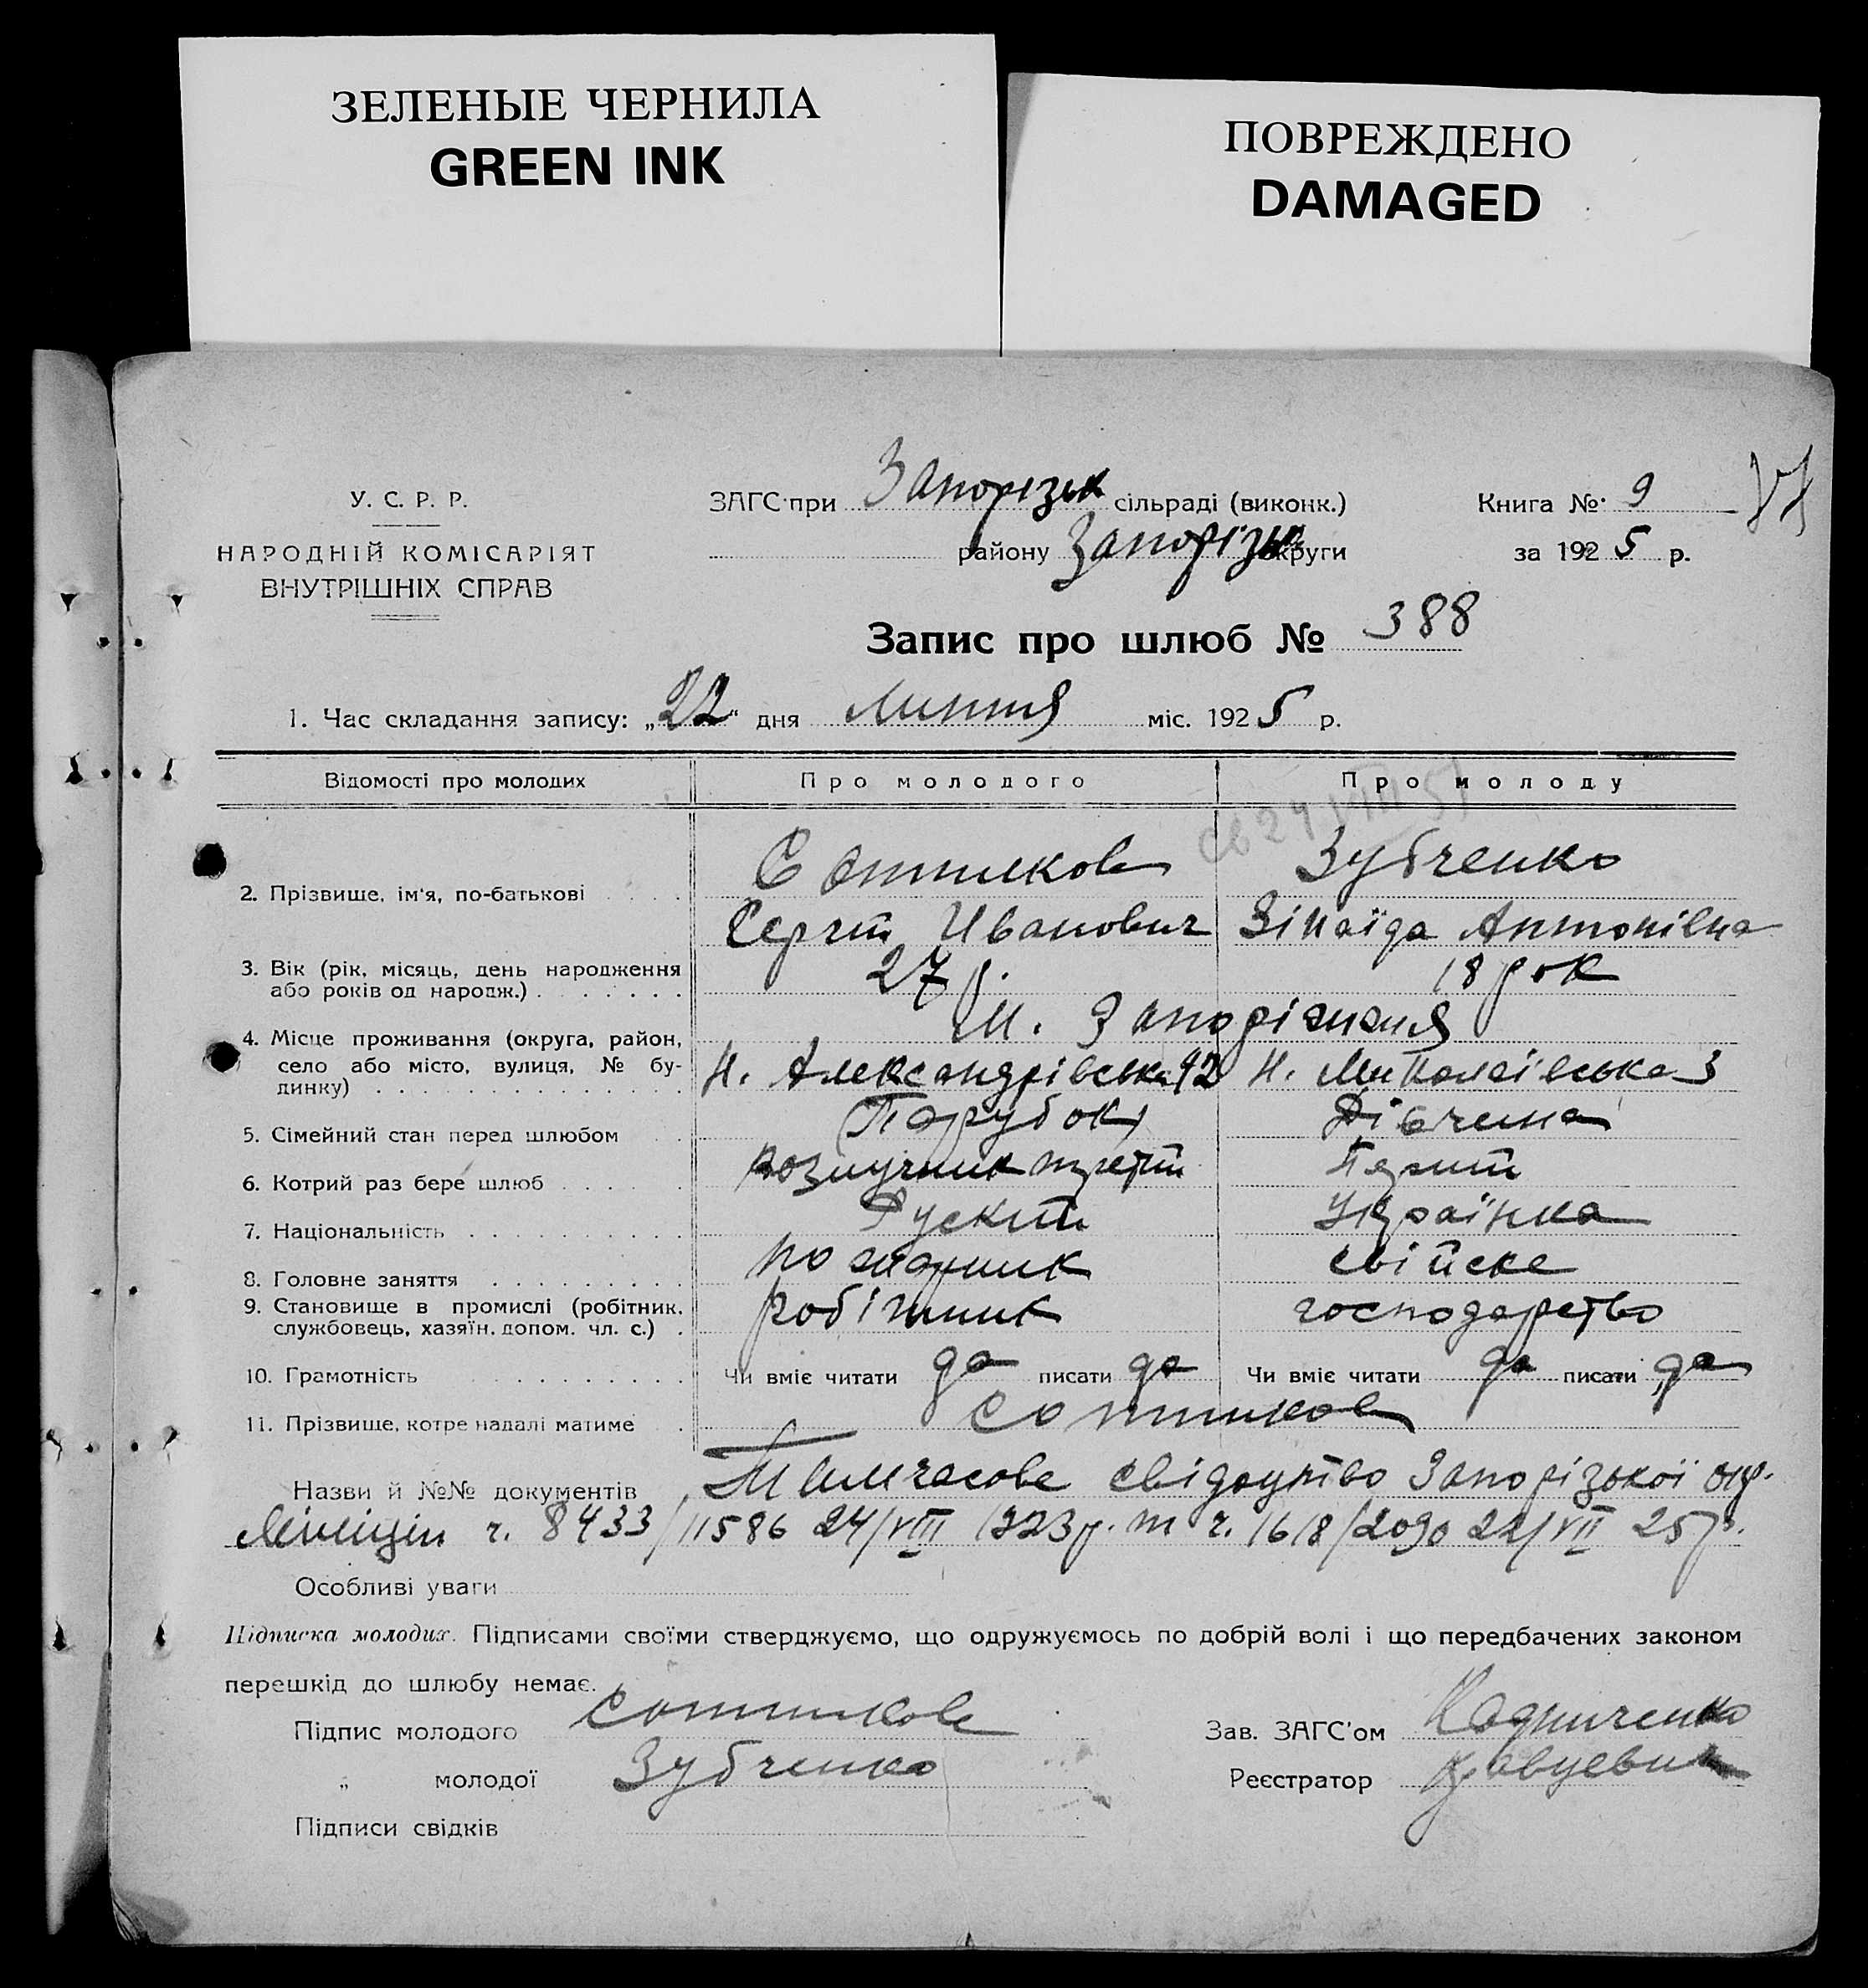 ЗЕЛЕНЫЕ ЧЕРНИЛА
GREEN INK
ПОВРЕЖДЕНО
DAMAGED
У. С. Р. Р.
НАРОДНІЙ КОМІСАРІЯТ
ВНУТРІШНІХ СПРАВ
ЗАГС при Запорізьк сільраді (виконк.)
району Запорізьк округи
Книга № 9
за 1925 р.
Запис про шлюб № 388
1. Час складання запису: „22“ дня Липня міс. 1925 р.
Відомості про молодих Про молодого Про молоду
2. Прізвище, ім'я, по-батькові Сотников Зубченко
Сергій Иванович Зінаїда Антонівна
3. Вік (рік, місяць, день народження або років од народж.) 27 р. 18 рок
4. Місце проживання (округа, район, село або місто, вулиця, № будинку) М. Запоріжжя
Н. Александрівська 92 Н. Миколаївська 3
5. Сімейний стан перед шлюбом (Парубок) Дівчина
6. Котрий раз бере шлюб третій Перший
7. Національність Руский Українка
8. Головне заняття свійске
9. Становище в промислі (робітник, службовець, хазяїн, допом. чл. с.) робітник господарство
10. Грамотність Чи вміє читати да писати да Чи вміє читати да писати да
11. Прізвище, котре надалі матиме Сотников
Назви й №№ документів Тимчасове свідоцтво Запорізької окр.
Міліціи ч. 8433/11586 24/VIII 1923 р. та ч. 1618/2090 22/VII 25 р.
Особливі уваги
Підписка молодих. Підписами своїми стверджуємо, що одружуємось по добрій волі і що передбачених законом
перешкід до шлюбу немає.
Підпис молодого Сотников
Зав. ЗАГС'ом
„ молодої Зубченко
Реєстратор
Підписи свідків